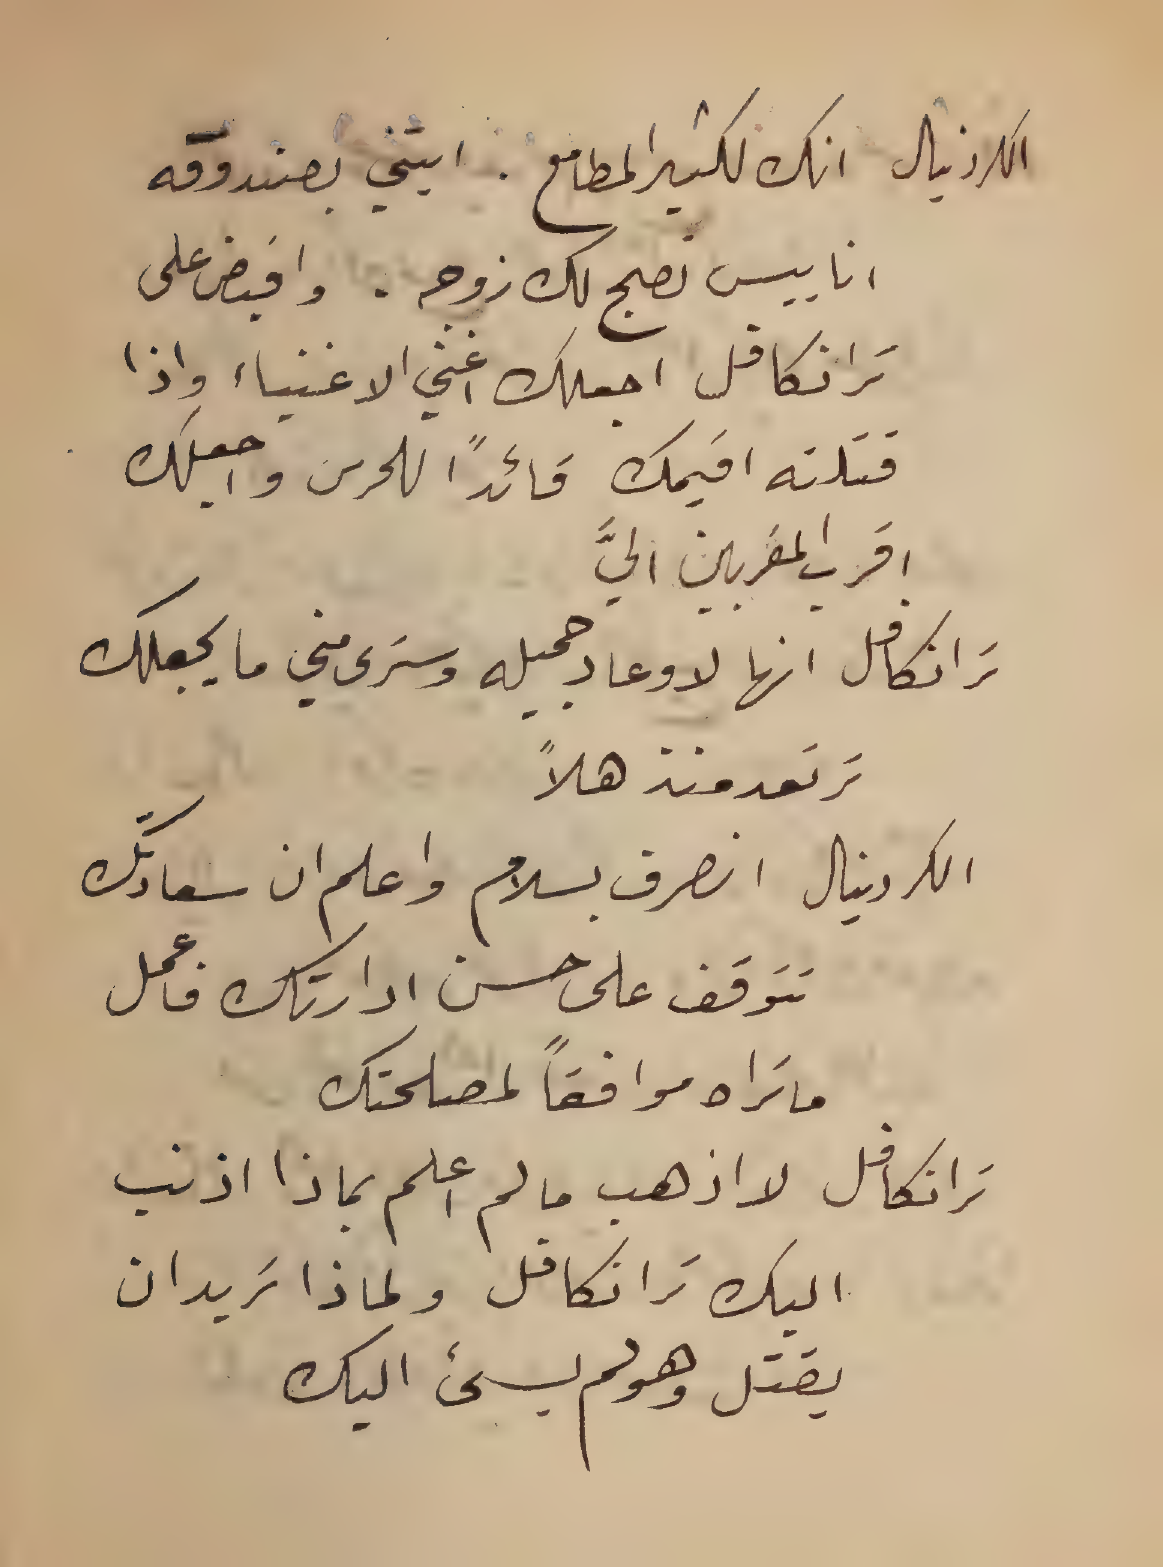 الكردنيال انك لكثير المطامع . ايتني بصندوقه
اناييس تصبح لك زوجه . واقبض على
ترانكافل اجعلك اغنى الاغنياء واذا
قتلته اقيمك قائدًا للحرس واجعلك
اقرب المقربين اليَّ
ترانكافل انها لاوعاد جميله وسترى مني ما يجعلك
ترتعد منذ هلاً
الكردينال انصرف بسلام واعلم ان سعادتك
تتوقف على حسن ادارتك فاعمل
ما تراه موافقاً لمصلحتك
ترانكافل لا اذهب ما لم اعلم بماذا اذنب
اليك ترانكافل ولماذا تريد ان
يقتل وهو لم يسئ اليك